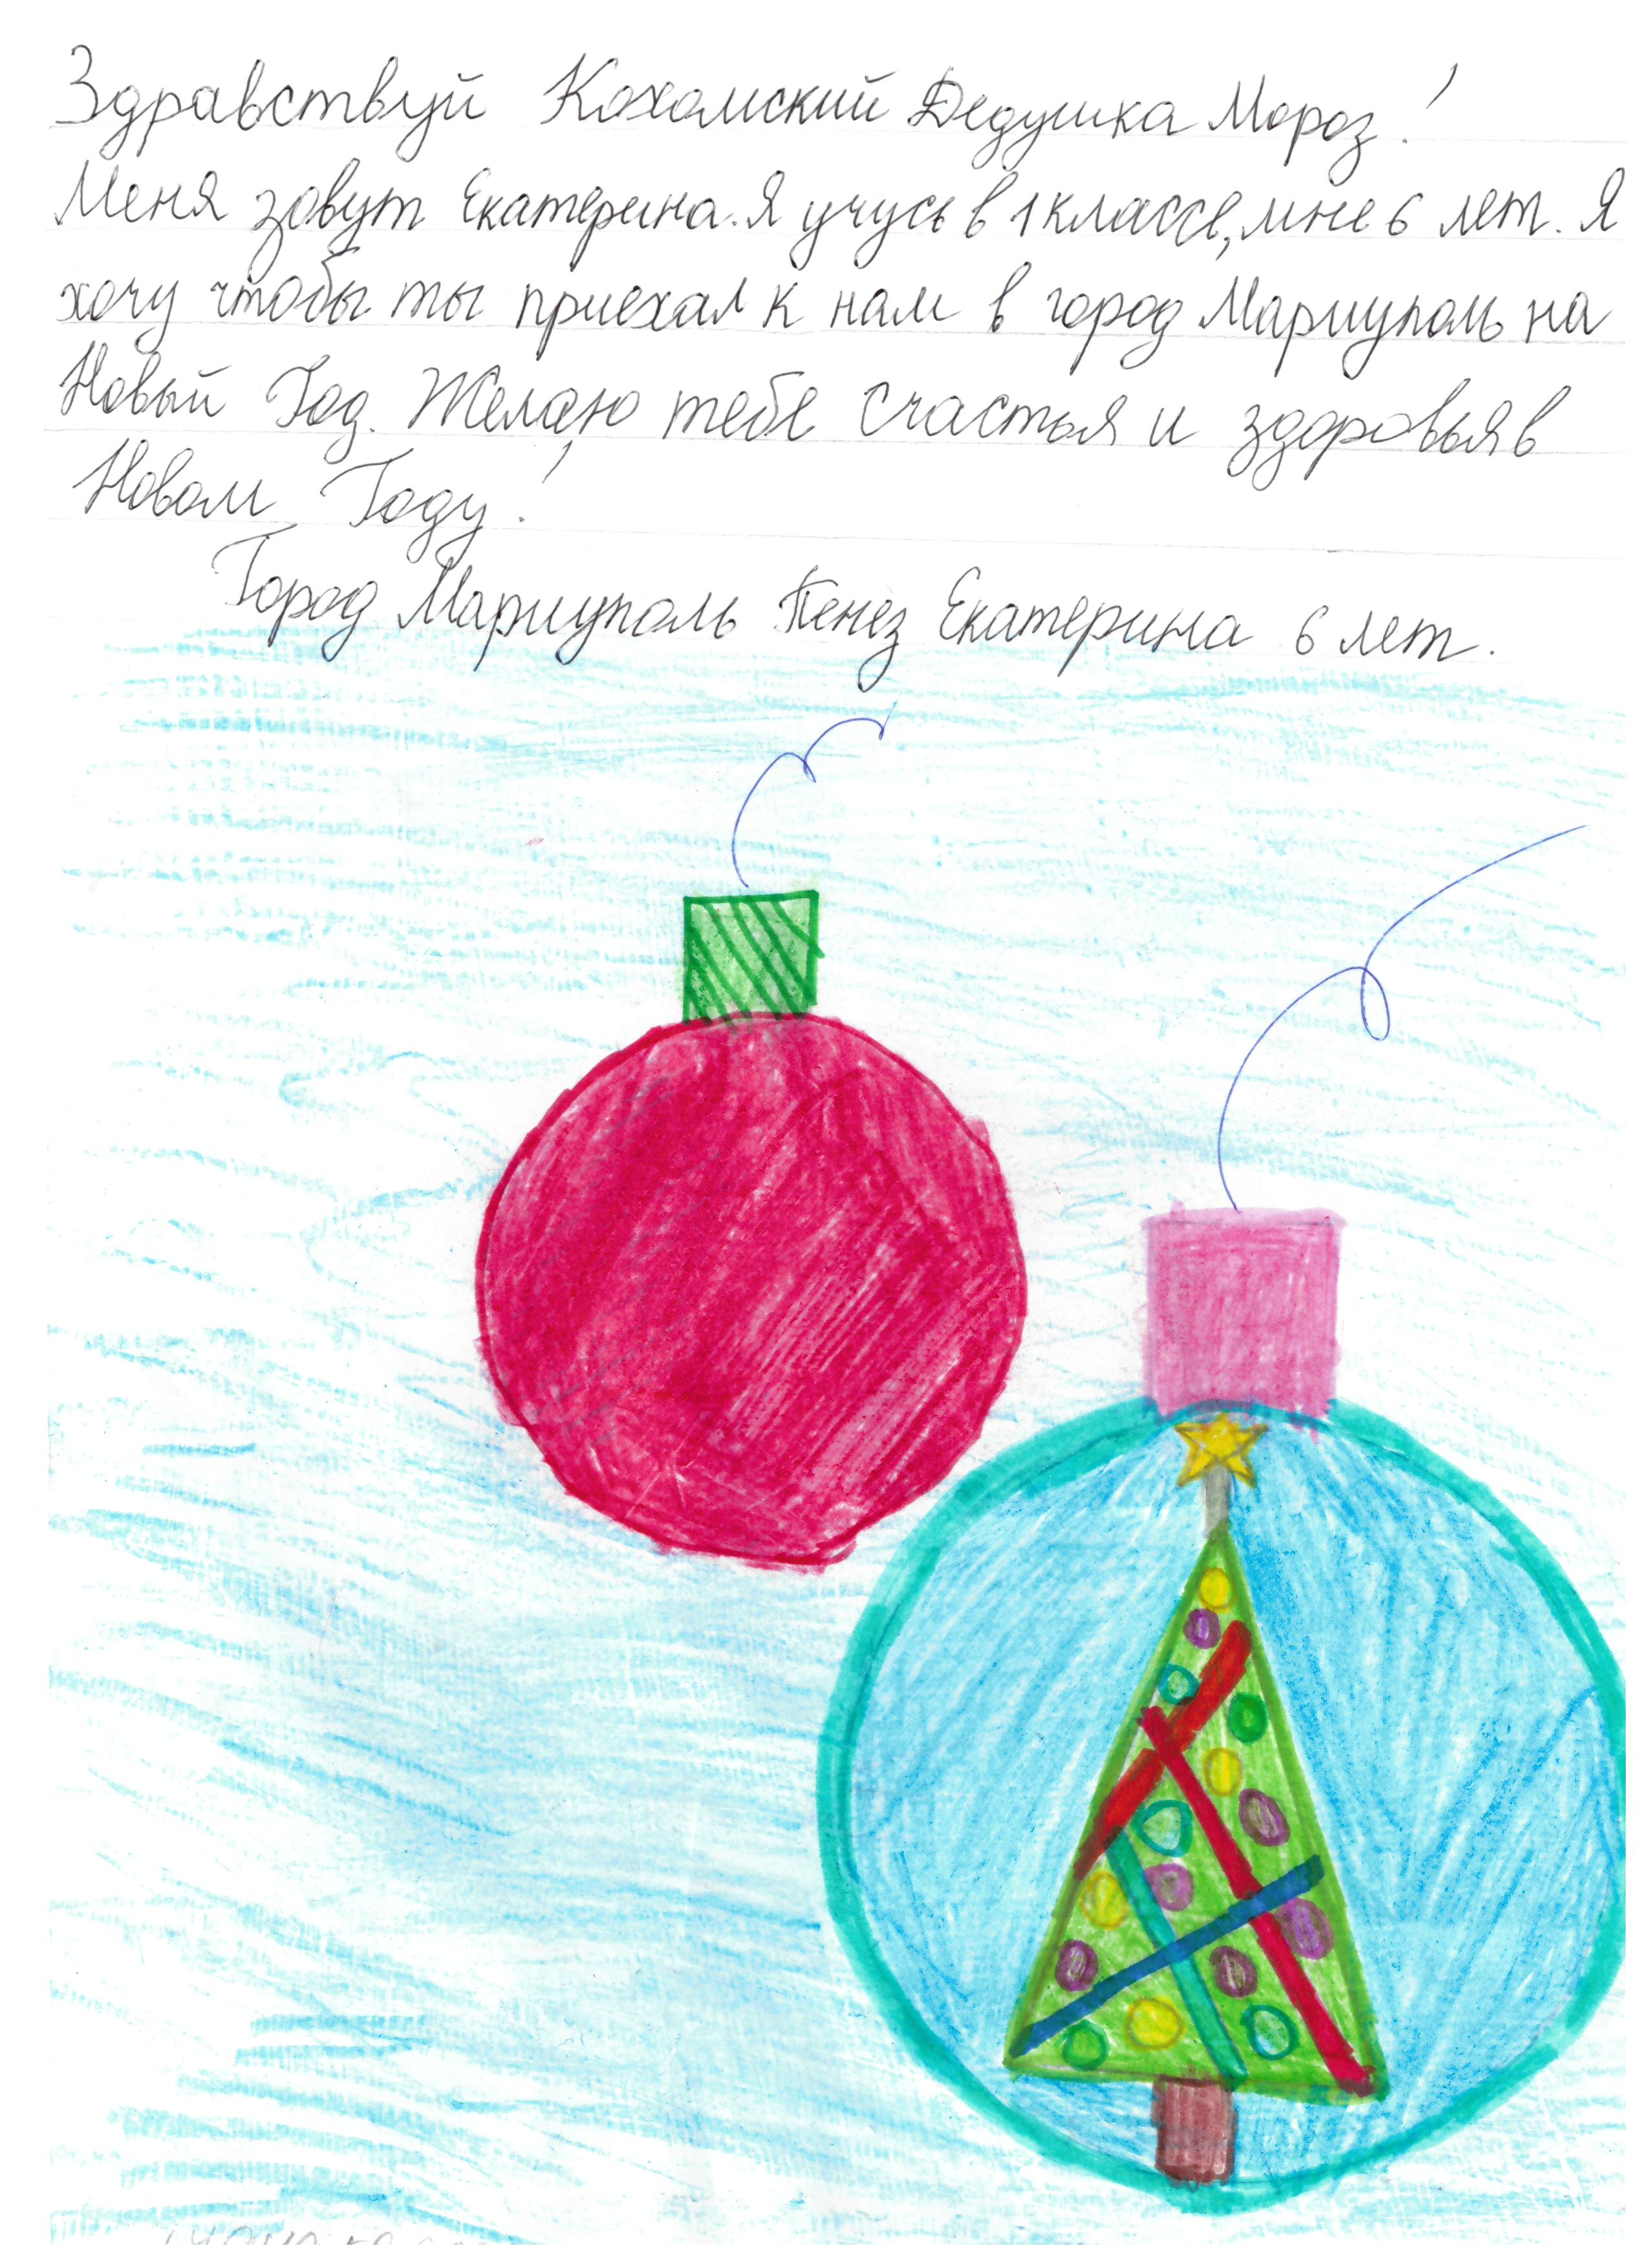 Здравствуй Кохомский Дедушка Мороз!
Меня зовут Екатерина. Я учусь в 1 классе, мне 6 лет. Я
хочу чтобы ты приехал к нам в город Мариуполь на
Новый Год. Желаю тебе счастья и здоровья в
Новом Году!
Город Мариуполь Пенез Екатерина 6 лет.